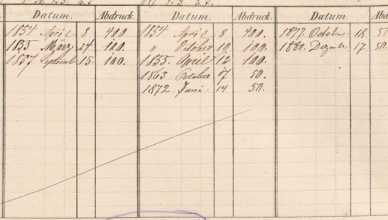 Datum. Abdruck. Datum. Abdruck. Datum.
1854 April 8 400. 1854 April 8 400. 1877 October 18
1855 März 24 100. " October 10 100. 1880 Dezembr 17 50
1857 Septembr 15 100. 1855 April 12 100.
1863 October 17 50.
1872 Juni 14 50.